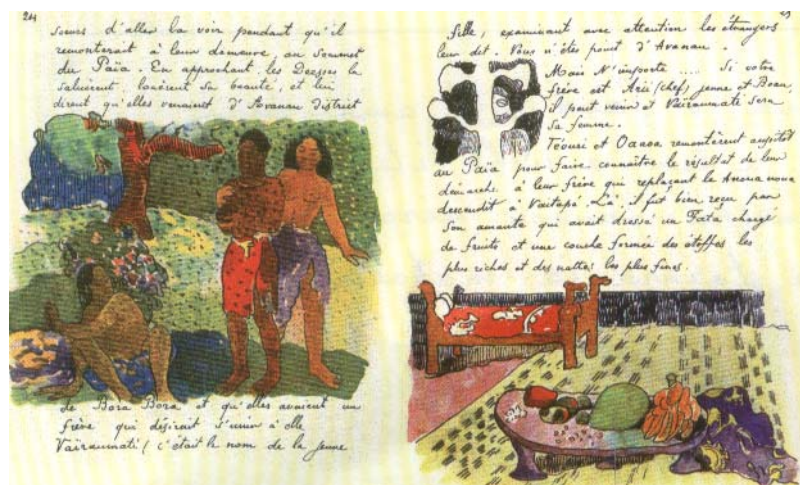 24
soeurs d'aller la voir pendant qu'il
remonterait à leur demeure, au sommet
du Païa. En approchant, les Déesses la
saluèrent, louèrent sa beauté, et lui
dirent qu'elles venaient d'Avanau district
de Bora Bora et qu'elles avaient un
frère qui désirait s'unir à elle
Vaïraumati (c'était le nom de la jeune
fille, examinant avec attention les étrangers
leur dit. Vous n'êtes point d'Avanau.
Mais N'importe .... Si votre
frère est Arii (chef) jeune et Beau,
il peut venir et Vaïraumati sera
sa femme.
Téouri et Oaaoa remontèrent aussitôt
au Païa pour faire connaître le résultat de leur
démarche à leur frère qui replaçant le Anoua noua
descendit à Vaitapé. Là, il fut bien reçu par
son amante qui avait dressé un Fata chargé
de fruits et une couche formée des étoffes les
plus riches et des nattes les plus fines.